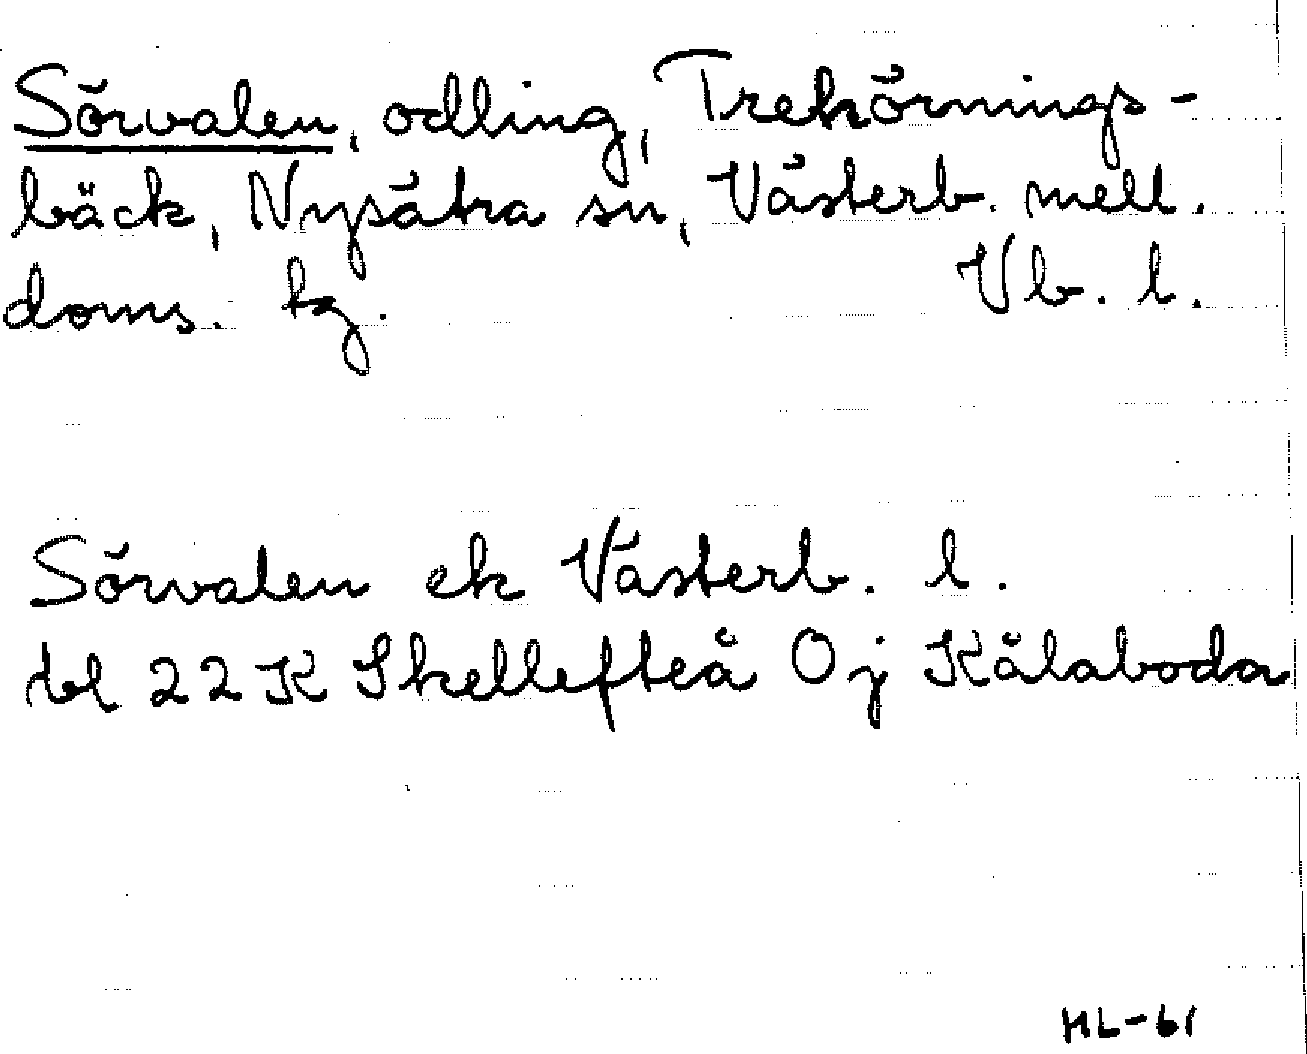 Sörvalen, odling, Trehörnings-
bäck, Nysätra sn, Västerb. mell.
doms. tg. Vb. l.
Sörvalen ek Västerb. l.
bl 22 K Skellefteå 0 j Kålaboda
HL-61